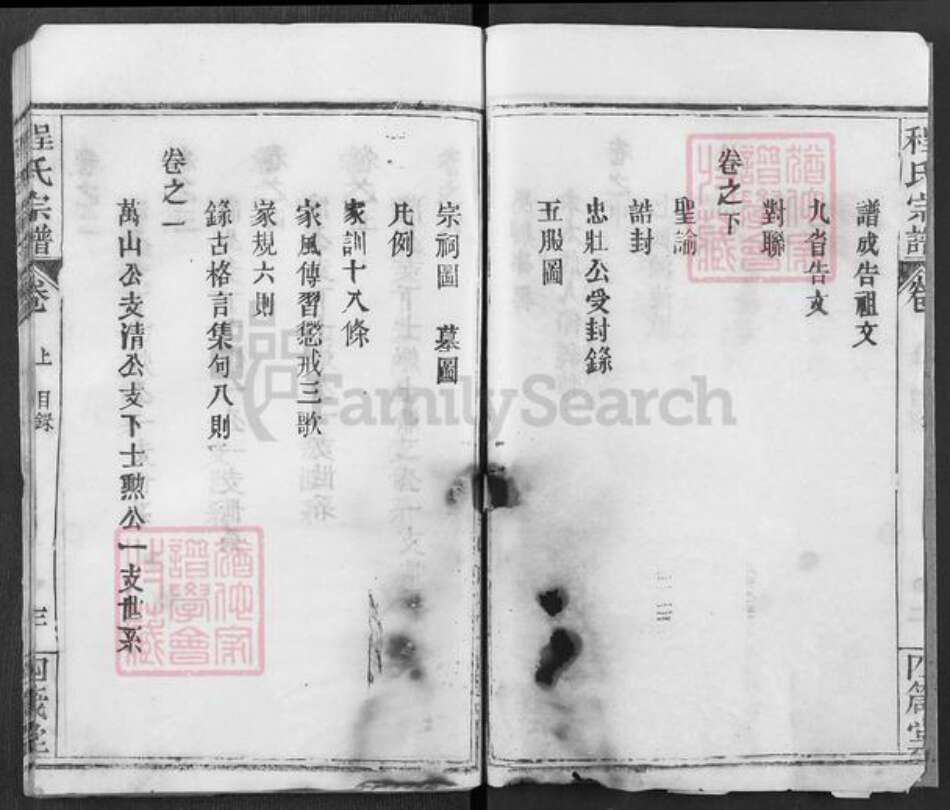 譜成告祖文
九省告文
對聯
卷之下
聖諭
誥封
忠壯公受封錄
五服圖
宗祠圖　墓圖
凡例
家訓十八條
家風傳習懲戒三歌
家規六則
錄古格言集句八則
卷之一
萬山公支清公支下士勲公一支世系
程氏宗譜
卷
上
目錄
三
四箴堂
程氏宗譜
卷
四箴堂
FamilySearch